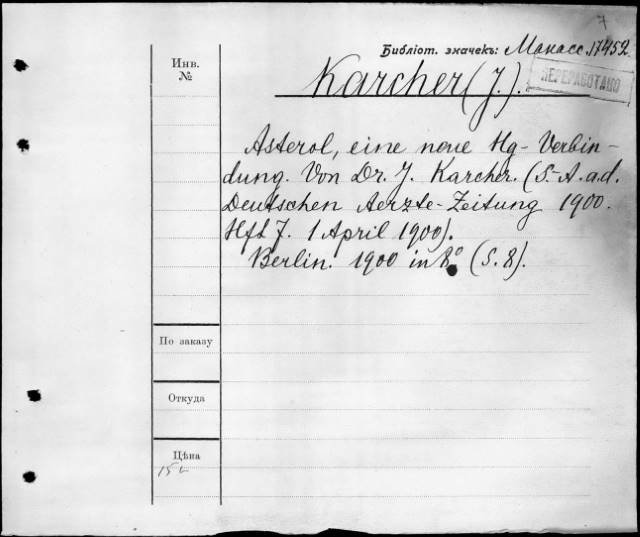 7
Библіот. значекъ: Манасс. 17452
ПЕРЕРАБОТАНО
Инв.
№
Karcher (J.).
Asterol, eine neue Hg-Verbin-
dung. Von Dr. J. Karcher. (S.-A. a. d.
Deutschen Aerzte-Zeitung 1900.
Hft 7. 1 April 1900).
Berlin. 1900 in 8° (S. 8).
По заказу
Откуда
Цѣна